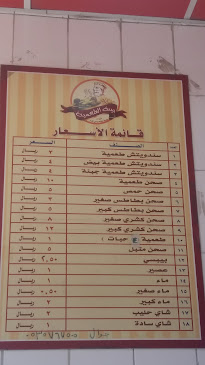 قائمة الأسعار
الصنف السعر
١ سندويتش طعمية ٣ ريال
٢ سندويتش طعمية بيض ٤ ريال
٣ سندويتش طعمية جبنة ٤ ريال
٤ صحن طعمية ١٠ ريال
٥ صحن حمص ٥ ريال
٦ صحن بطاطس صغير ٣ ريال
٧ صحن بطاطس كبير ٥ ريال
٨ صحن كشري صغير ٨ ريال
٩ صحن كشري كبير ١٢ ريال
١٠ طعمية حبات ١ ريال
١١ صحن متبل ٥ ريال
١٢ بيبسي ٢,٥٠ ريال
١٣ عصير ١ ريال
١٤ ماء ١ ريال
١٥ ماء صغير ٠,٥٠ ريال
١٦ ماء كبير ٢ ريال
١٧ شاي حليب ٢ ريال
١٨ شاي سادة ١ ريال
جوال